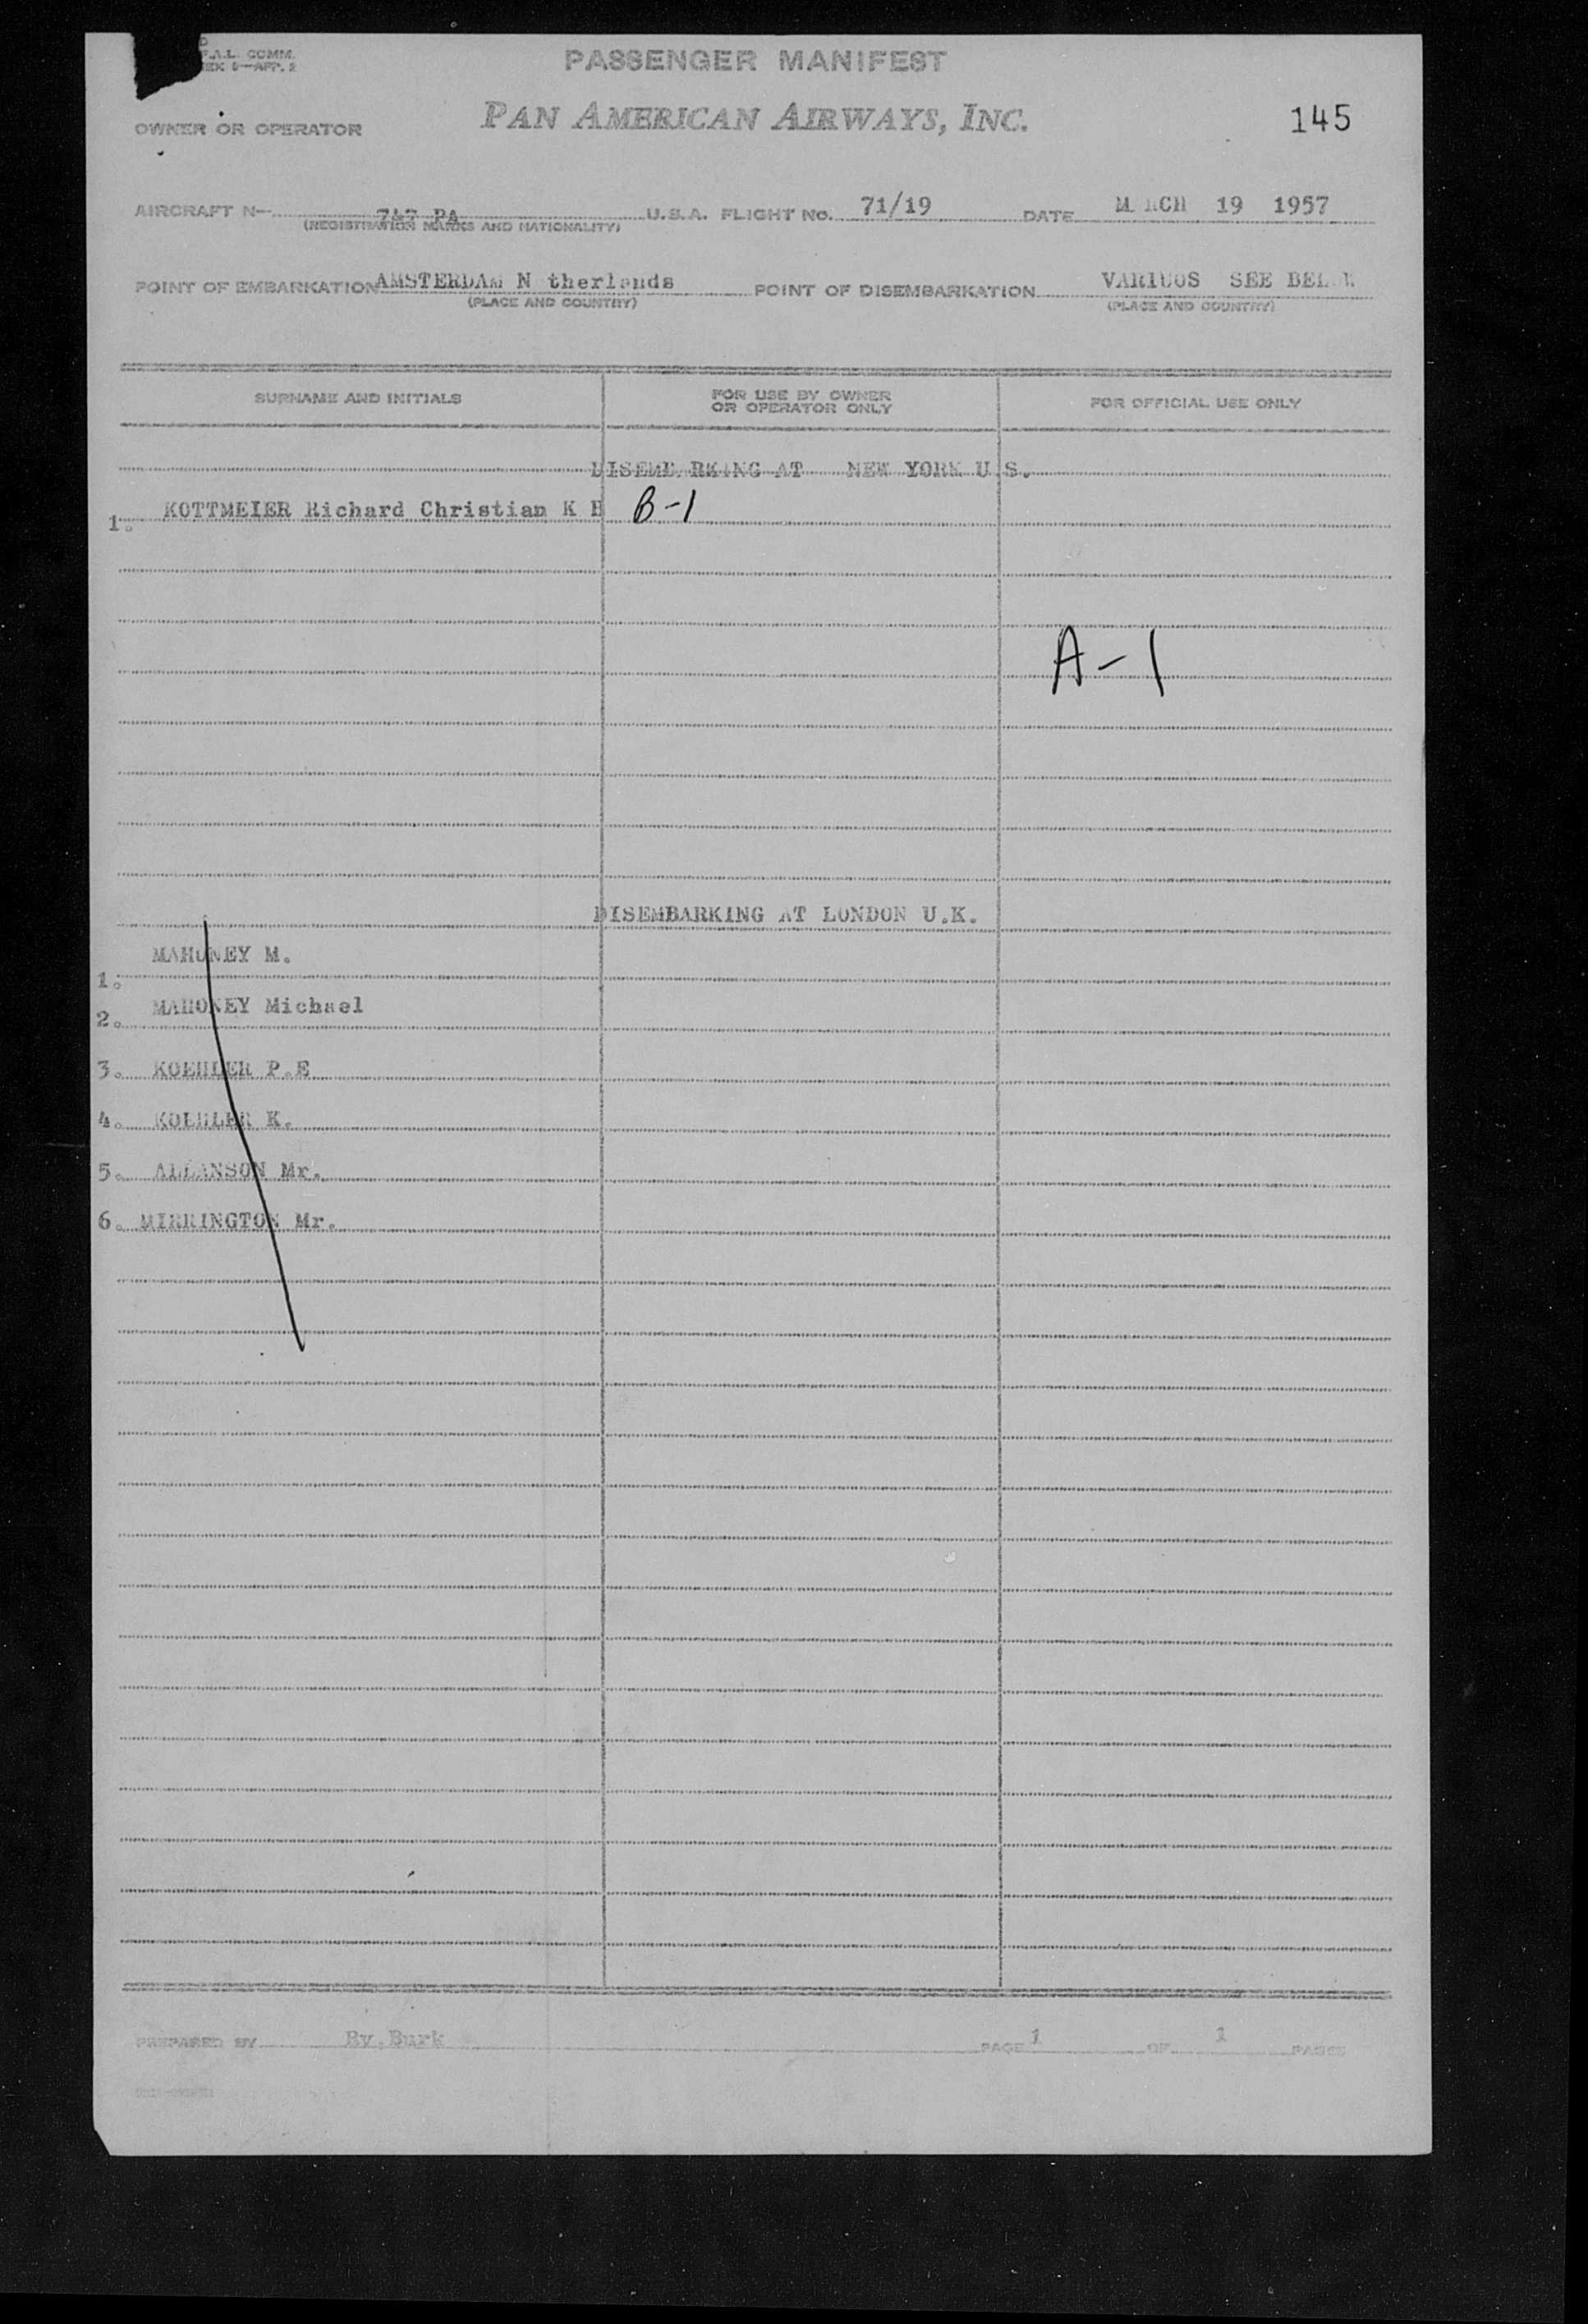 F.A.L. COMM.
PASSENGER MANIFEST
OWNER OR OPERATOR PAN AMERICAN AIRWAYS, INC. 145
AIRCRAFT N- PA U.S.A. FLIGHT No. 71/19 DATE M RCH 19 1957
(REGISTRATION MARKS AND NATIONALITY)
POINT OF EMBARKATION AMSTERDAM N therlands POINT OF DISEMBARKATION VARIUOS SEE BEL W
(PLACE AND COUNTRY) (PLACE AND COUNTRY)
SURNAME AND INITIALS FOR USE BY OWNER OR OPERATOR ONLY FOR OFFICIAL USE ONLY
DISEMB RKING AT NEW YORK U.S.
1. KOTTMEIER Richard Christian K H B-1
A-1
DISEMBARKING AT LONDON U.K.
1. MAHONEY M.
2. MAHONEY Michael
3. KOEHLER P.E
4. KOEHLER K.
5. ALLANSON Mr.
6. MIRRINGTON Mr.
PREPARED BY Ry.Burk PAGE 1 OF 1 PAGES